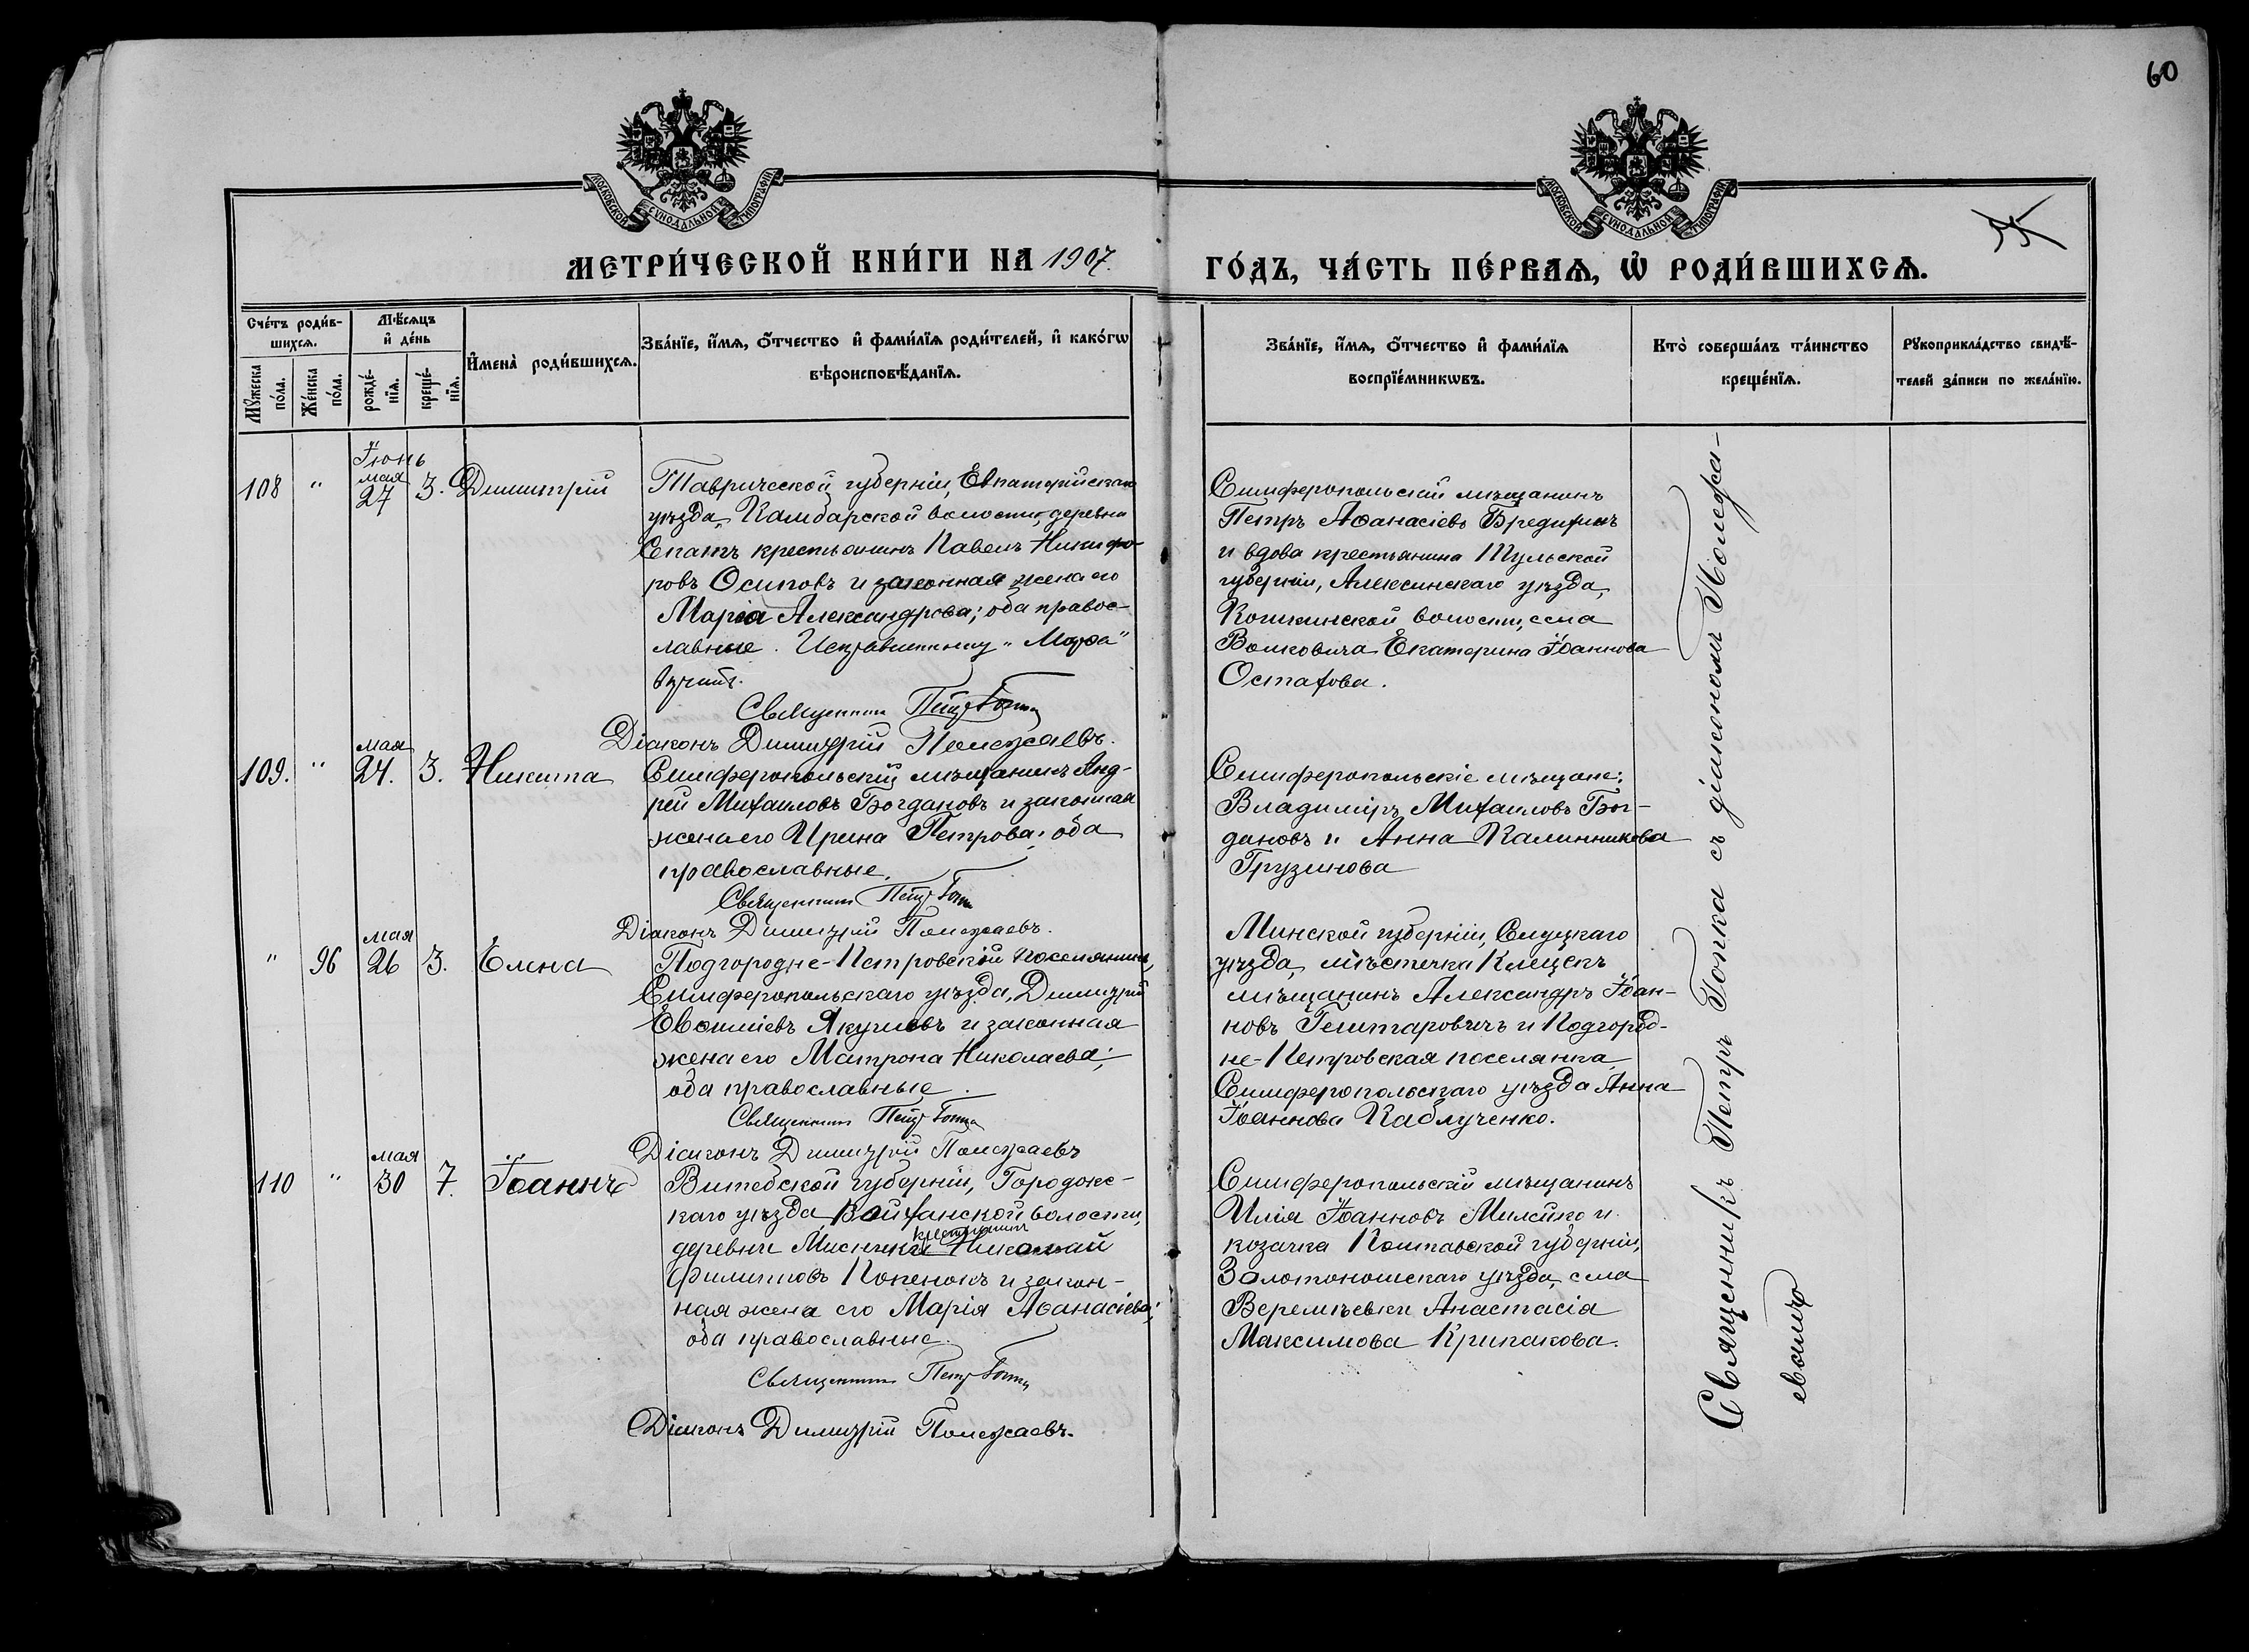 60
МОСКОВСКОЙ СѴНОДАЛЬНОЙ ТИПОГРАФІИ
МОСКОВСКОЙ СѴНОДАЛЬНОЙ ТИПОГРАФІИ
МЕТРИ́ЧЕСКОЙ КНИ́ГИ НА 1907.
ГО́ДЪ, ЧА́СТЬ ПЕ́РВАѦ, Ѡ҆ РОДИ́ВШИХСѦ.
Сче́тъ роди́в-
шихсѧ.
Мꙋ́жеска по́ла.
Же́нска по́ла.
Мѣ́сѧцъ
и҆ де́нь
рожде́-
нїѧ.
креще́-
нїѧ.
И҆мена̀ роди́вшихсѧ.
Зва́нїе, и҆́мѧ, ѻ҆́тчество и҆ фами́лїѧ роди́телей, и҆ како́гѡ
вѣроисповѣ́данїѧ.
Зва́нїе, и҆́мѧ, ѻ҆́тчество и҆ фами́лїѧ
воспрїе́мникѡвъ.
Кто̀ соверша́лъ та́инство
креще́нїѧ.
Рꙋкоприкла́дство свидѣ́-
телей за́писи по жела́нїю.
Іюнь
108 " мая 27 3. Димитрій
Таврической губерніи, Евпаторійскаго
уѣзда, Камбарской волости, деревни
Спатъ крестьянинъ Павелъ Никифо-
ровъ Осиповъ и законная жена его
Марія Александрова; оба правос-
лавные.
Священникъ Петръ Гопка
Діаконъ Димитрій Полежаевъ.
Симферопольскій мѣщанинъ
Петръ Аѳанасіевъ Бредихинъ
и вдова крестьянина Тульской
губерніи, Алексинскаго уѣзда,
волости, села
Волковича Екатерина Іоаннова
Остахова.
109. " мая 24. 3. Никита
Симферопольскій мѣщанинъ Анд-
рей Михаиловъ Богдановъ и законная
жена его Ирина Петрова; оба
православные.
Священникъ Петръ Гопка
Діаконъ Димитрій Полежаевъ.
Симферопольскіе мѣщане:
Владиміръ Михаиловъ Бог-
дановъ и Анна Калинникова
Грузинова
" 96 мая 26 3. Елена
Подгородне-Петровскій поселянинъ,
Симферопольскаго уѣзда, Димитрій
Евѳиміевъ Якушевъ и законная
жена его Матрона Николаева;
оба православные.
Священникъ Петръ Гопка
Діаконъ Димитрій Полежаевъ
Минской губерніи, Слуцкаго
уѣзда, мѣстечка Клецкъ
мѣщанинъ Александръ Іоан-
новъ и Подгород-
не-Петровская поселянка
Симферопольскаго уѣзда Анна
Іоаннова Каблученко.
110 " мая 30 7. Іоаннъ
Витебской губерніи, Городокс-
каго уѣзда, Войханской волости,
деревни крестьянинъ Николай
Филипповъ Копенокъ и закон-
ная жена его Марія Аѳанасіева;
оба православные.
Священникъ Петръ Гопка
Діаконъ Димитрій Полежаевъ.
Симферопольскій мѣщанинъ
Илія Іоанновъ Милейко и
козачка Полтавской губерніи,
Золотоношскаго уѣзда, села
Веремѣевки Анастасія
Максимова Крипакова.
Священникъ Петръ Гопка съ діакономъ Полежа-
евымъ